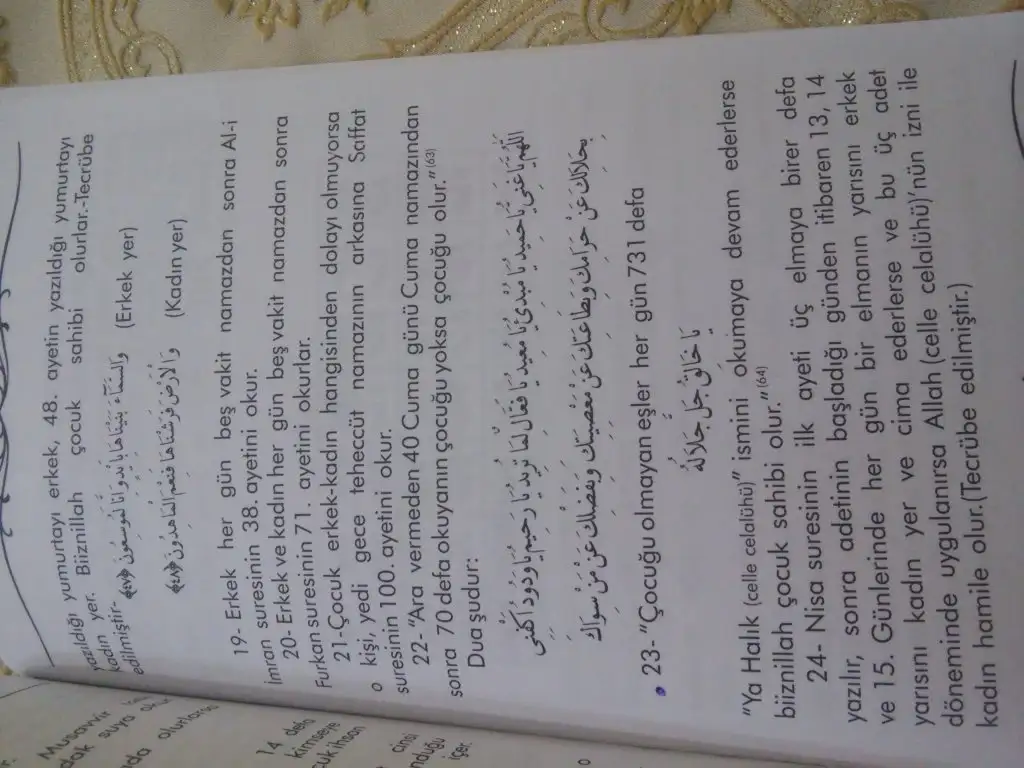 yazıldığı yumurtayı erkek, 48. ayetin yazıldığı yumurtayı
kadın yer. Biiznillah çocuk sahibi olurlar.-Tecrübe
edilmiştir-
وَالسَّمَاءَ بَنَيْنَاهَا بِأَيْدٍ وَإِنَّا لَمُوسِعُونَ ﴿٤٧﴾ (Erkek yer)
وَالْأَرْضَ فَرَشْنَاهَا فَنِعْمَ الْمَاهِدُونَ ﴿٤٨﴾ (Kadın yer)
19- Erkek her gün beş vakit namazdan sonra Al-i
İmran suresinin 38. ayetini okur.
20- Erkek ve kadın her gün beş vakit namazdan sonra
Furkan suresinin 71. ayetini okurlar.
21-Çocuk erkek-kadın hangisinden dolayı olmuyorsa
o kişi, yedi gece teheccüt namazının arkasına Saffat
suresinin 100. ayetini okur.
22- "Ara vermeden 40 Cuma günü Cuma namazından
sonra 70 defa okuyanın çocuğu yoksa çocuğu olur."(63)
Dua şudur:
اَللّٰهُمَّ يَا غَنِيُّ يَا حَمِيدُ يَا مُبْدِئُ يَا مُعِيدُ يَا فَعَّالٌ لِمَا يُرِيدُ يَا رَحِيمُ يَا وَدُودُ اَكْفِنِى
بِحَلَالِكَ عَنْ حَرَامِكَ وَبِطَاعَتِكَ عَنْ مَعْصِيَتِكَ وَبِفَضْلِكَ عَنْ مَنْ سِوَاكَ
• 23- "Çocuğu olmayan eşler her gün 731 defa
يَا خَالِقُ جَلَّ جَلَالُهُ
"Ya Halık (celle celalühü)" ismini okumaya devam ederlerse
biiznillah çocuk sahibi olur."(64)
24- Nisa suresinin ilk ayeti üç elmaya birer defa
yazılır, sonra adetinin başladığı günden itibaren 13, 14
ve 15. Günlerinde her gün bir elmanın yarısını erkek
yarısını kadın yer ve cima ederlerse ve bu üç adet
döneminde uygulanırsa Allah (celle celalühü)'nün izni ile
kadın hamile olur.(Tecrübe edilmiştir.)
Musavvir
suya
olurlar
14 defa
kimseye
ihsan
cinsi
içer.